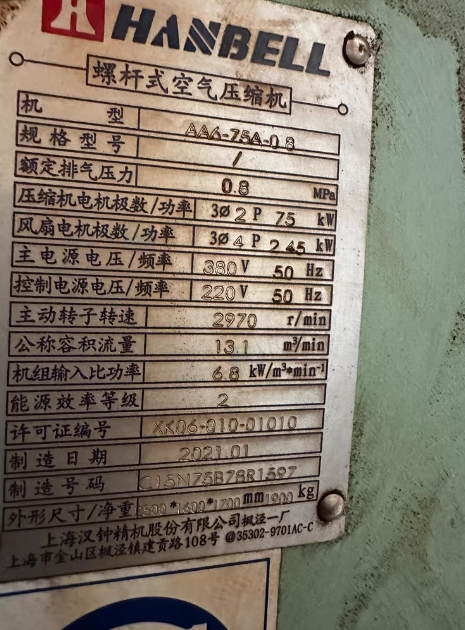 HANBELL
螺杆式空气压缩机
机型 AA6-75A-0.8
规格型号 /
额定排气压力 0.8 MPa
压缩机电机极数/功率 3Ø 2 P 75 kW
风扇电机极数/功率 3Ø 4 P 2.45 kW
主电源电压/频率 380 V 50 Hz
控制电源电压/频率 220 V 50 Hz
主动转子转速 2970 r/min
公称容积流量 13.1 m³/min
机组输入比功率 6.8 kW/m³•min⁻¹
能源效率等级 2
许可证编号 XK06-010-01010
制造日期 2021.01
制造号码 C15N75B78R1597
外形尺寸/净重 2500*1600*1700 mm 1900 kg
上海汉钟精机股份有限公司枫泾一厂
上海市金山区枫泾镇建贡路108号 @35302-9701AC-C